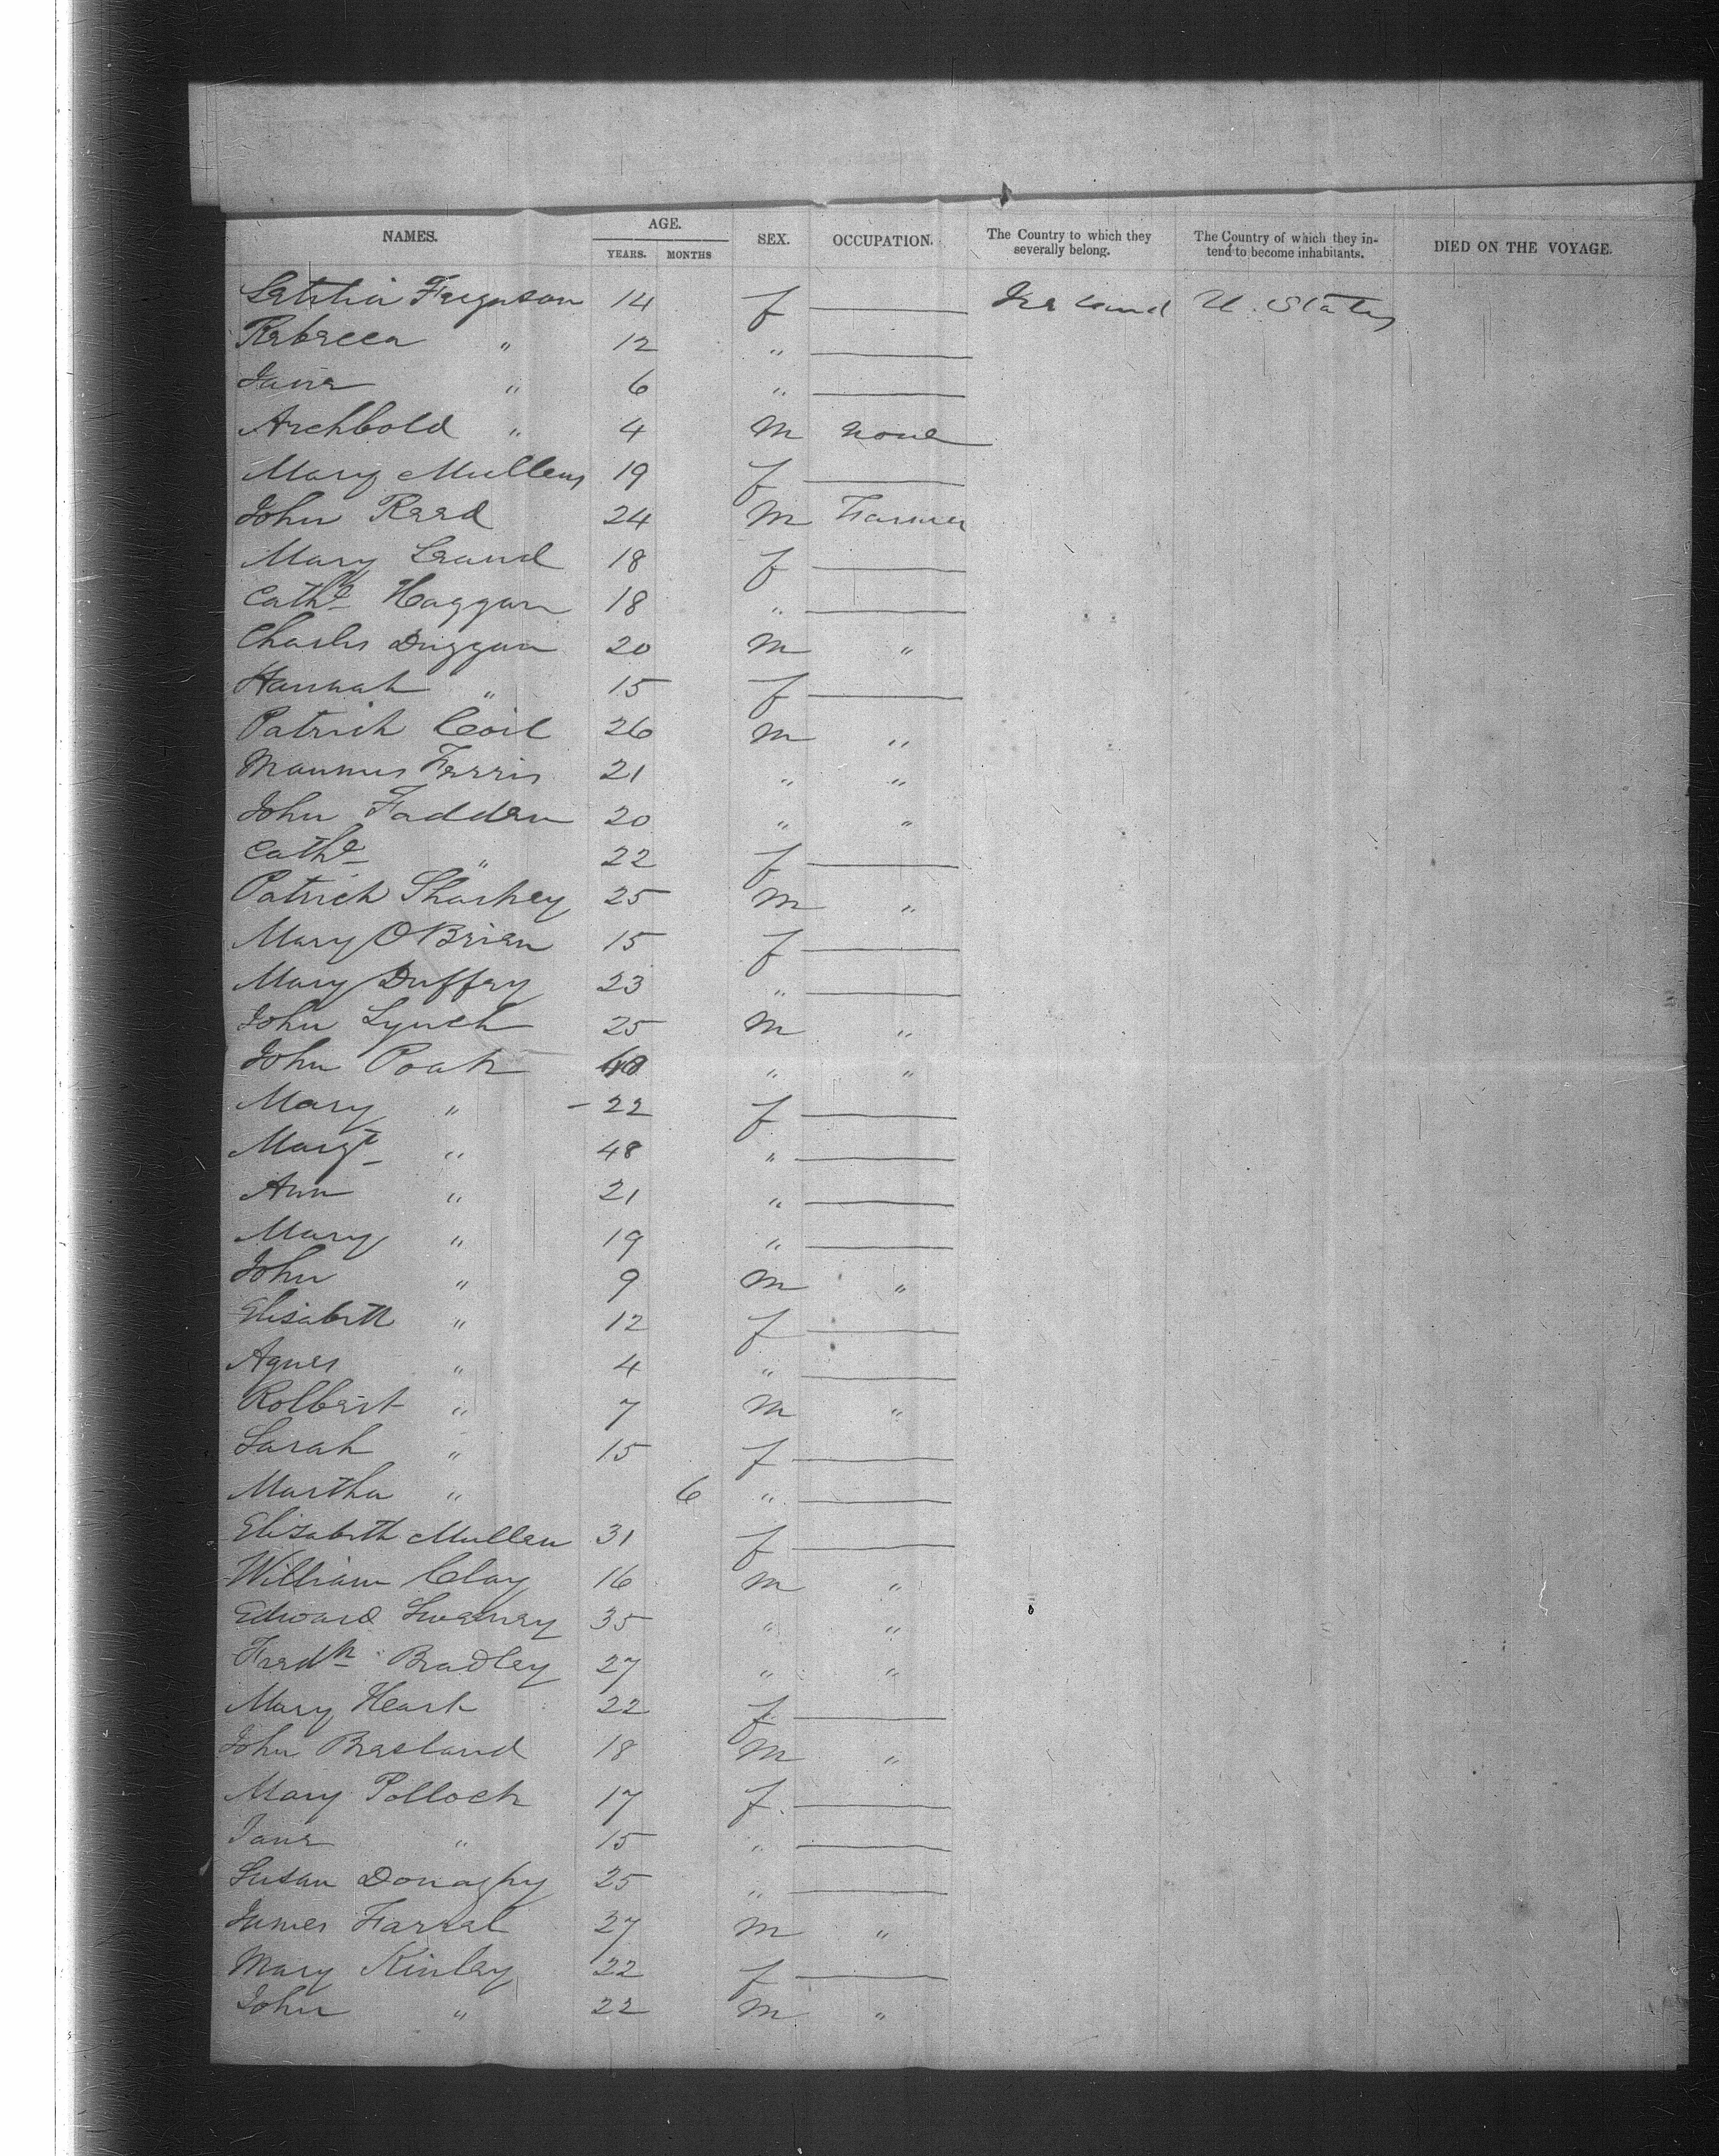 NAMES. AGE. SEX. OCCUPATION. The Country to which they severally belong. The Country of which they intend to become inhabitants. DIED ON THE VOYAGE.
YEARS. MONTHS
Letitia Ferguson 14 f —— Ireland U. States
Rebecca " 12 " ——
Jane " 6 " ——
Archbold " 4 M None
Mary Mullens 19 f ——
John Reed 24 M Farmer
Mary 18 f ——
Cathe Haggan 18 " ——
Charles Duggan 20 M "
Hannah " 15 f ——
Patrick Coil 26 M "
Mannus Ferris 21 " "
John Fadden 20 " "
Cathe " 22 f ——
Patrick Sharkey 25 M "
Mary O Brien 15 f ——
Mary Duffey 23 " ——
John Lynch 25 M "
John Poak " "
Mary " - 22 f ——
Margt " 48 " ——
Ann " 21 " ——
Mary " 19 " ——
John " 9 M "
Elisabeth " 12 f ——
Agnes " 4 " ——
Rolbert " 7 M "
Sarah " 15 f ——
Martha " 6 " ——
Elizabeth Mullen 31 f ——
William Clay 16 M "
Edward Sweeney 35 " "
Fredk Bradley 27 " "
Mary 22 f ——
John Bresland 18 M "
Mary Pollock 17 f. ——
Jane " 15 " ——
Susan Donaghy 25 " ——
James Farrel 27 M "
Mary Kinley 22 f ——
John " 22 M "